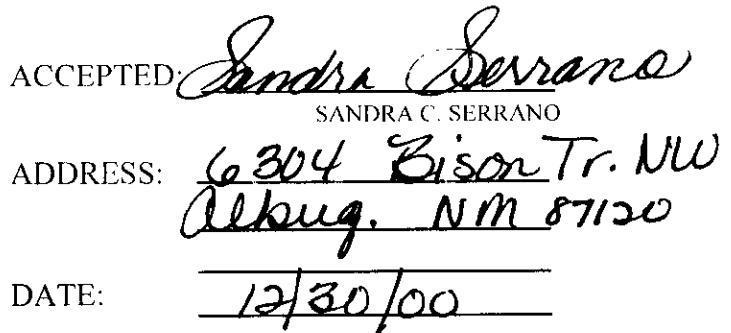 ACCEPTED: Sandra Serrano
SANDRA C. SERRANO
ADDRESS: 6304 Bison Tr. NW
Albuq. NM 87120
DATE: 12/30/00